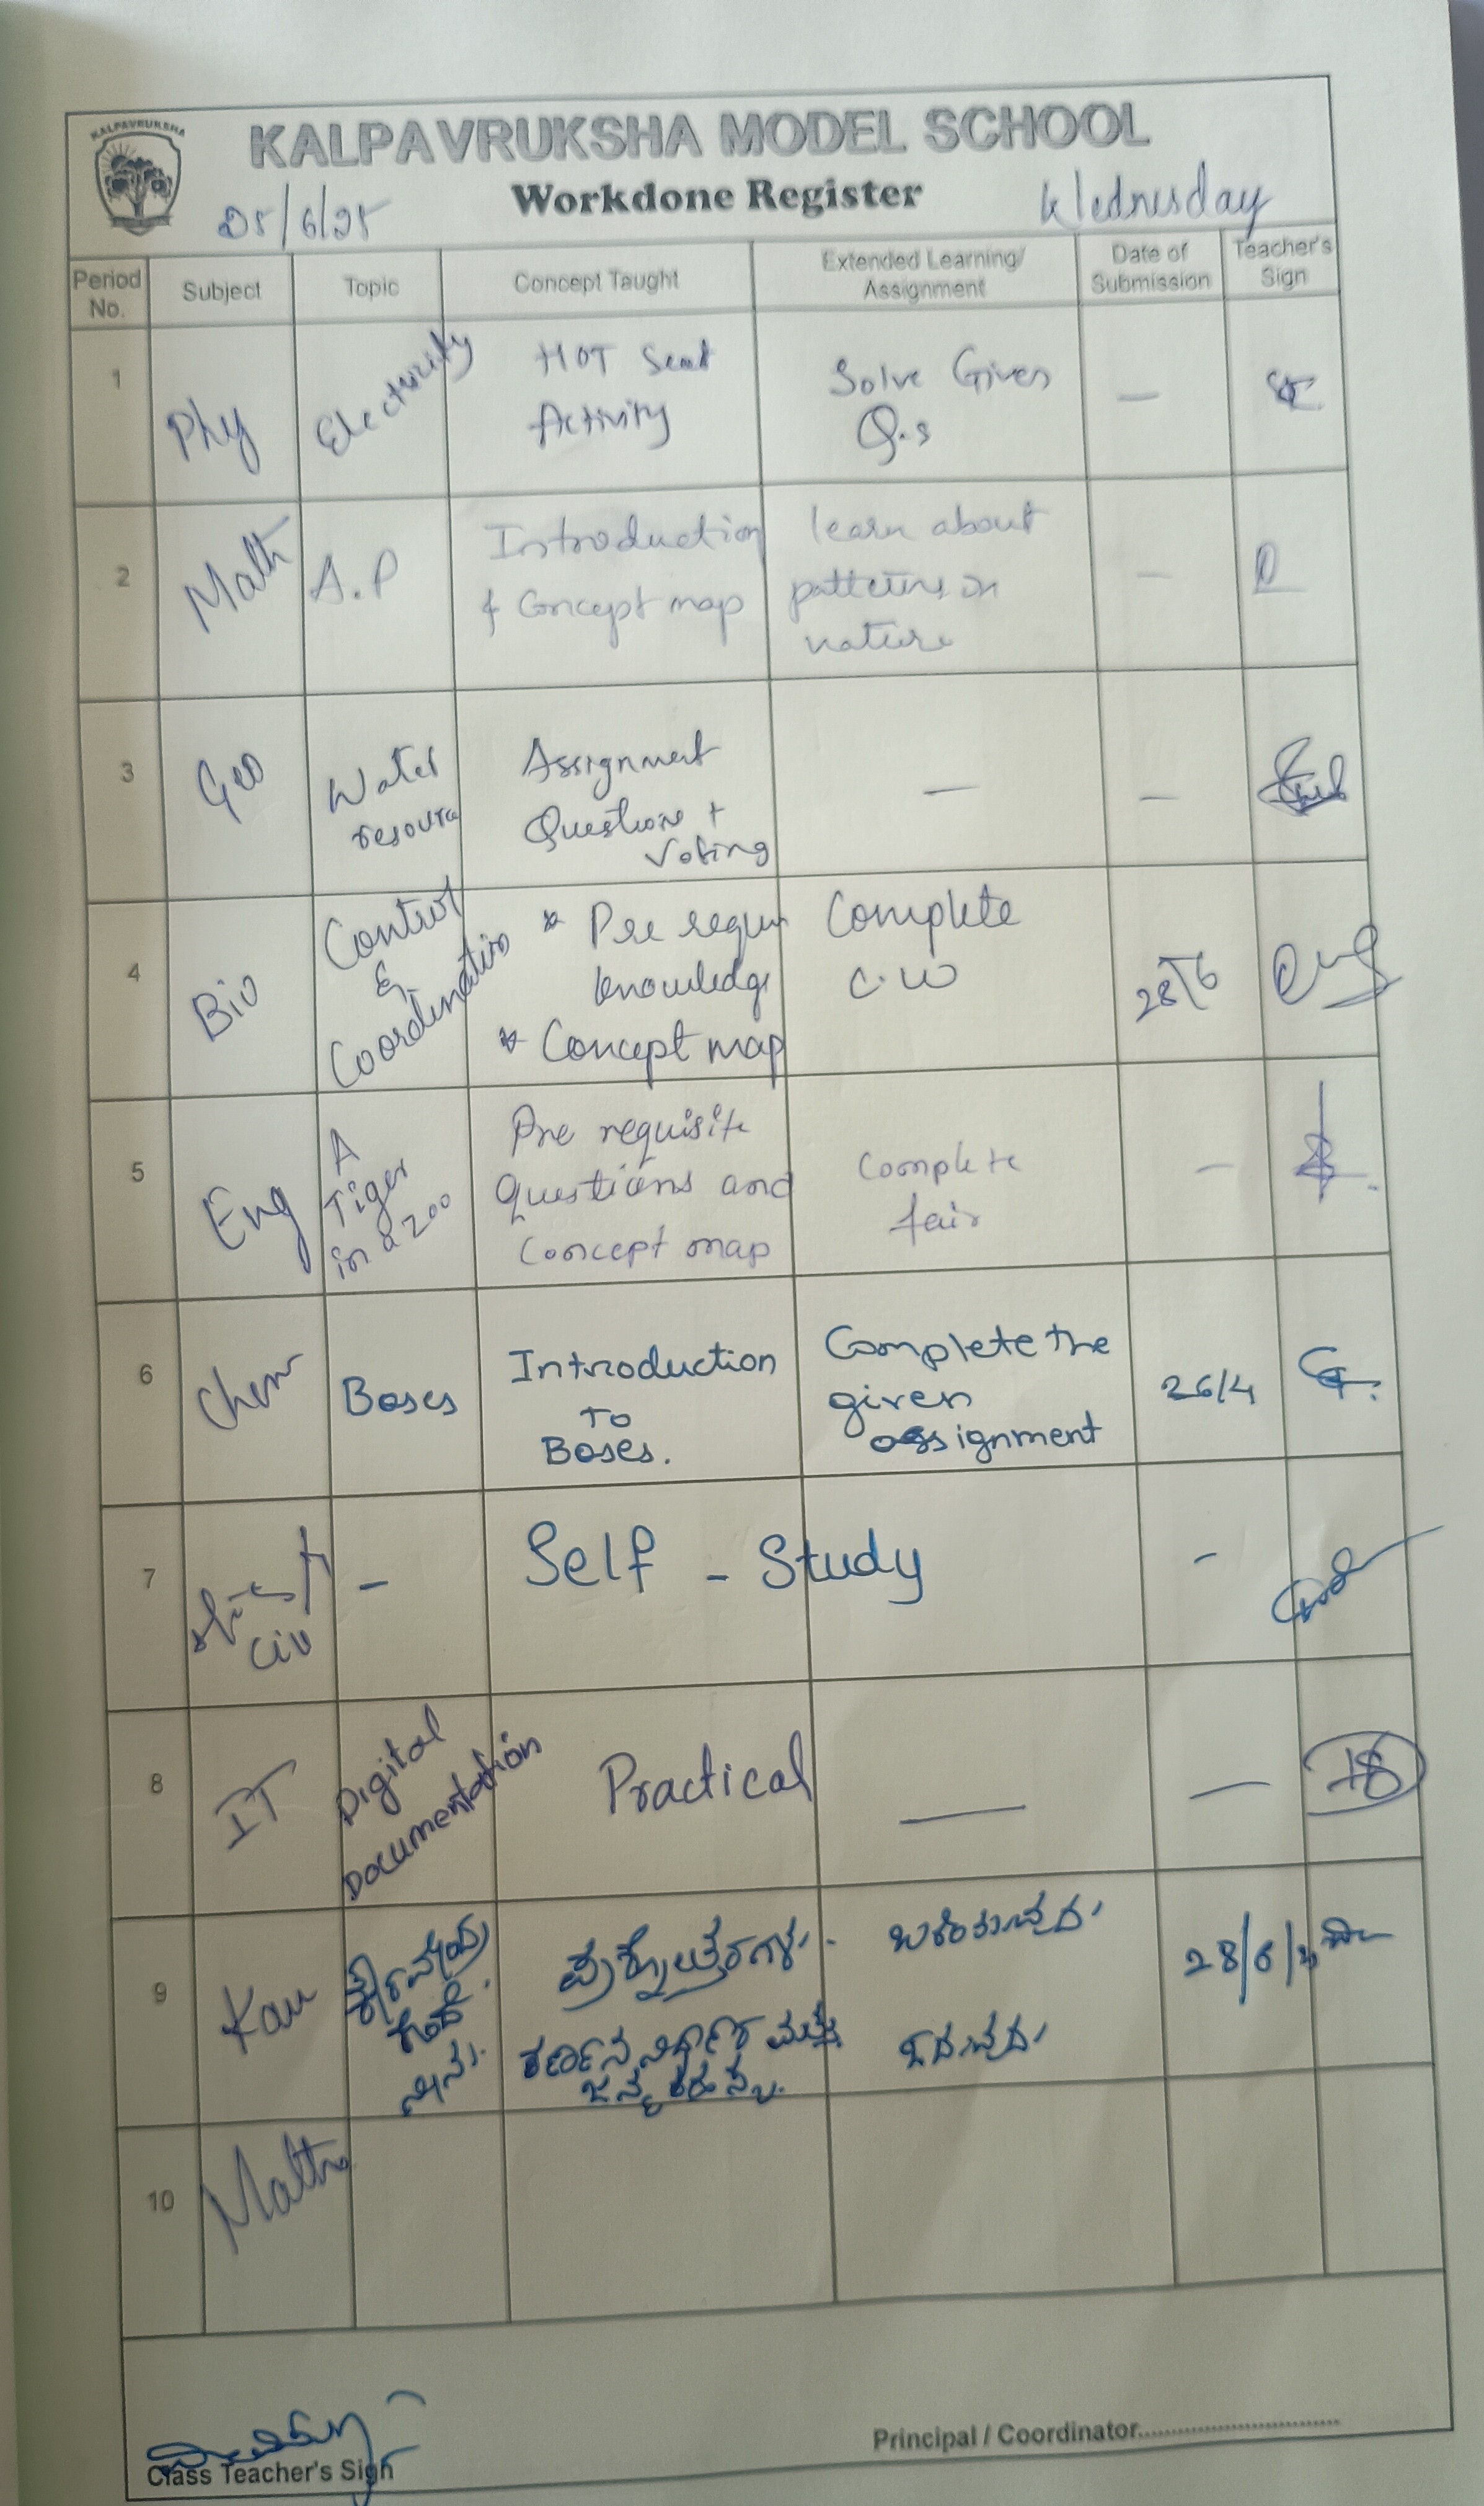 KALPAVRUKSHA
KALPAVRUKSHA MODEL SCHOOL
Workdone Register
25/6/25
Wednesday
Period No. Subject Topic Concept Taught Extended Learning/ Assignment Date of Submission Teacher's Sign
1 Phy Electricity HOT Seat Activity Solve Given Q.s —
2 Math A.P Introduction & Concept map learn about patterns in nature —
3 Geo Water resource Assignment Questions + Voting — —
4 Bio Control & Coordination * Pre requ knowledge * Concept map Complete C.W 28/6
5 Eng A Tiger in a zoo Pre requisite questions and Concept map Complete fair —
6 Chem Bases Introduction To Bases. Complete the given assignment 26/4
7 Civ - Self - Study -
8 IT Digital Documentation Practical — —
9 Kan ಪ್ರಶ್ನೋತ್ತರಗಳು. ಬರೆಯುವುದು 28/6/
ಓದುವುದು
10 Maths
Class Teacher's Sign
Principal / Coordinator